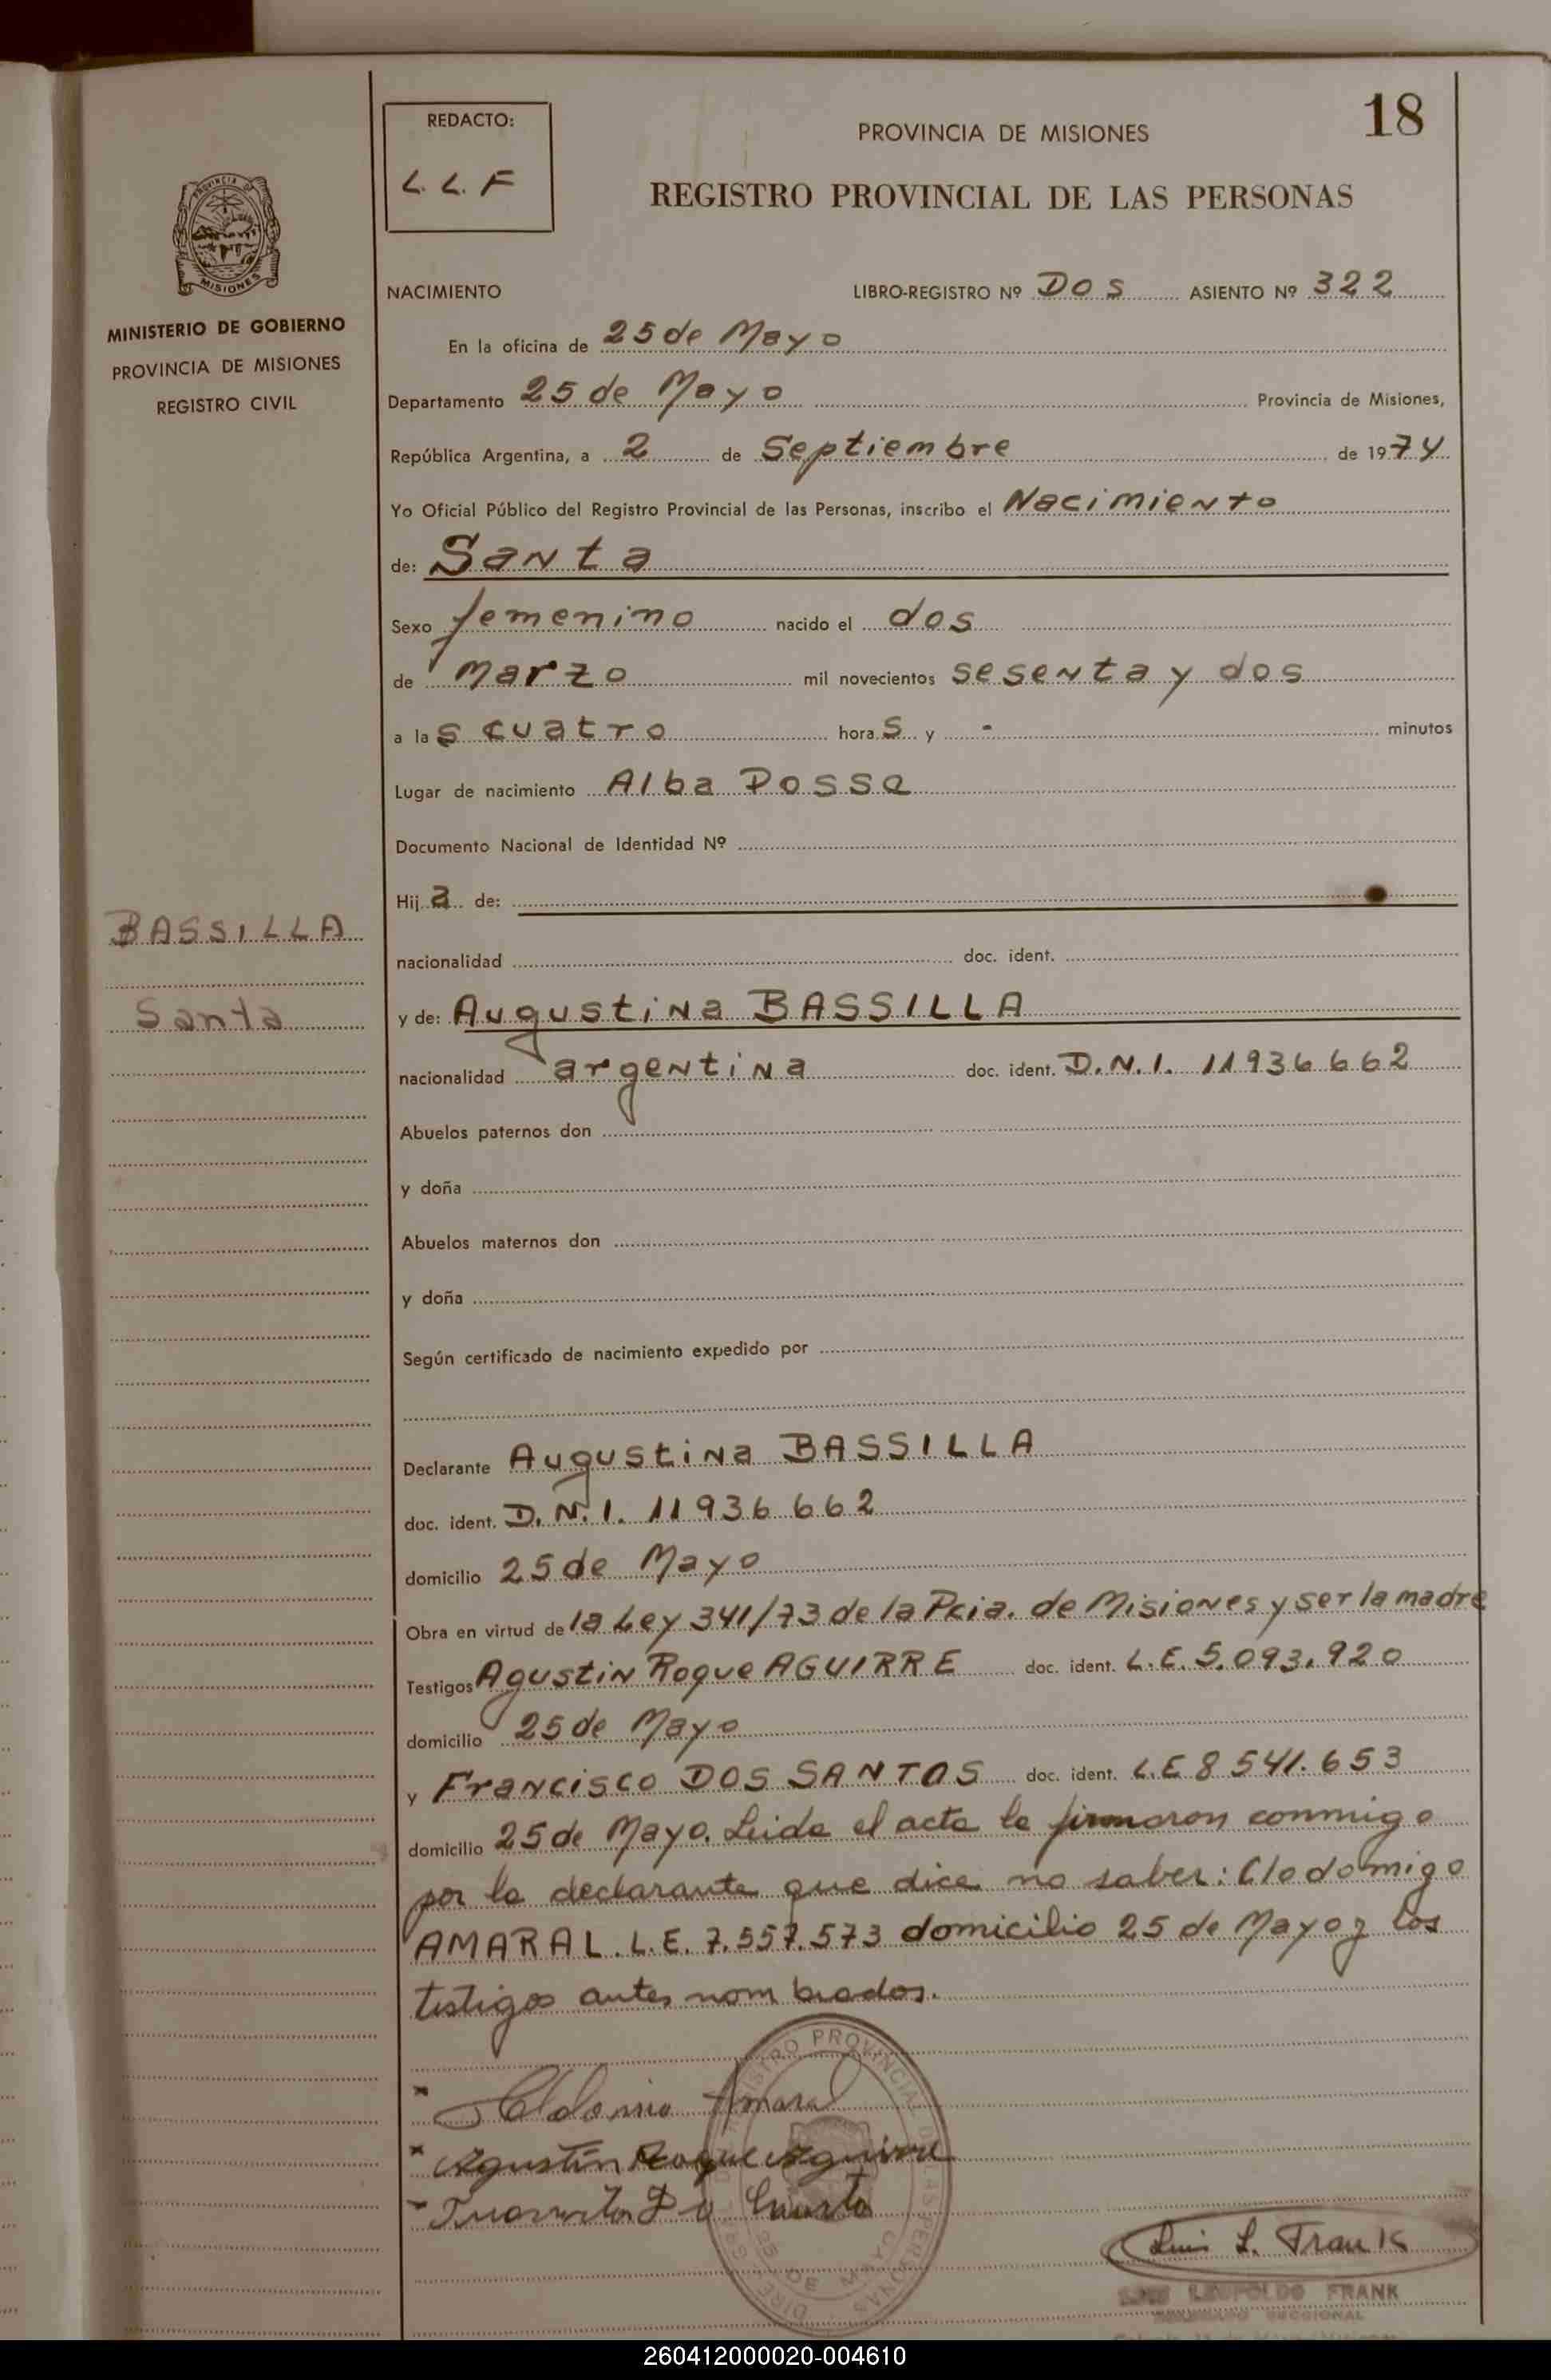 18
REDACTO:
L. L. F
PROVINCIA DE MISIONES
REGISTRO PROVINCIAL DE LAS PERSONAS
PROVINCIA DE
MISIONES
MINISTERIO DE GOBIERNO
PROVINCIA DE MISIONES
REGISTRO CIVIL
NACIMIENTO LIBRO-REGISTRO Nº DOS ASIENTO Nº 322
En la oficina de 25 de Mayo
Departamento 25 de Mayo Provincia de Misiones,
República Argentina, a 2 de Septiembre de 1974
Yo Oficial Público del Registro Provincial de las Personas, inscribo el Nacimiento
de: Santa
Sexo femenino nacido el dos
de Marzo mil novecientos sesenta y dos
a las cuatro horas y - minutos
Lugar de nacimiento Alba Posse
Documento Nacional de Identidad Nº
Hija de:
BASSILLA
nacionalidad doc. ident.
Santa
y de: Augustina BASSILLA
nacionalidad argentina doc. ident. D.N.I. 11936662
Abuelos paternos don
y doña
Abuelos maternos don
y doña
Según certificado de nacimiento expedido por
Declarante Augustina BASSILLA
doc. ident. D.N.I. 11936662
domicilio 25 de Mayo
Obra en virtud de la Ley 341/73 de la Pcia. de Misiones y ser la madre
Testigos Agustin Roque AGUIRRE doc. ident. L.E. 5.093.920
domicilio 25 de Mayo
y Francisco DOS SANTOS doc. ident. L.E 8541.653
domicilio 25 de Mayo. Leida el acta la firmaron conmigo
por la declarante que dice no saber: Clodomigo
AMARAL. L.E. 7.557.573 domicilio 25 de Mayo y los
testigos antes nombrados.
Amaral
Agustin Roque Aguirre
Luis L. Frank
LUIS LEOPOLDO FRANK
SECCIONAL
REGISTRO PROVINCIAL DE LAS PERSONAS
25 DE MAYO
260412000020-004610